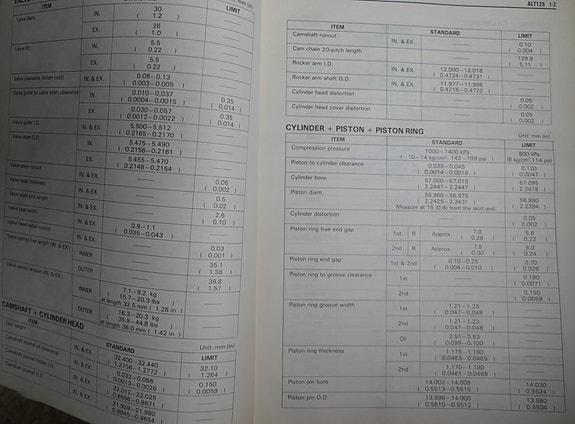 LIMIT
Valve diam.
IN.
30
( 1.2 )
EX.
26
( 1.0 )
Valve lift
IN.
5.5
( 0.22 )
EX.
5.5
( 0.22 )
Valve clearance (when cold)
IN. & EX.
0.08-0.13
( 0.003-0.005 )
Valve guide to valve stem clearance
IN.
0.010-0.037
( 0.0004-0.0015 )
0.35
( 0.014 )
EX.
0.030-0.057
( 0.0012-0.0022 )
0.35
( 0.014 )
Valve guide I.D.
IN. & EX.
5.500-5.512
( 0.2165-0.2170 )
Valve stem O.D.
IN.
5.475-5.490
( 0.2156-0.2161 )
EX.
5.455-5.470
( 0.2148-0.2154 )
Valve stem runout
IN. & EX.
0.05
( 0.002 )
Valve head thickness
IN. & EX.
0.5
( 0.02 )
Valve stem end length
IN. & EX.
2.6
( 0.10 )
Valve seat width
IN. & EX.
0.9-1.1
( 0.035-0.043 )
Valve head radial runout
IN. & EX.
0.03
( 0.001 )
Valve spring free length (IN. & EX.)
INNER
35.1
( 1.38 )
OUTER
39.8
( 1.57 )
Valve spring tension (IN. & EX.)
INNER
7.1-9.2 kg
( 15.7-20.3 lbs )
at length 32.5 mm ( 1.28 in )
OUTER
16.3-20.3 kg
( 35.9-44.8 lbs )
at length 36.0 mm ( 1.42 in )
CAMSHAFT + CYLINDER HEAD
Unit: mm (in)
ITEM
STANDARD
LIMIT
Cam height
IN. & EX.
32.400-32.440
( 1.2756-1.2772 )
32.10
( 1.264 )
Camshaft journal oil clearance
IN. & EX.
0.032-0.066
( 0.0013-0.0026 )
0.150
( 0.0059 )
Camshaft journal holder I.D.
IN. & EX.
22.012-22.025
( 0.8666-0.8671 )
Camshaft journal O.D.
IN. & EX.
21.959-21.980
( 0.8645-0.8654 )
ALT125 1-2
ITEM
STANDARD
LIMIT
Camshaft runout
IN. & EX.
0.10
( 0.004 )
Cam chain 20-pitch length
129.9
( 5.11 )
Rocker arm I.D.
IN. & EX.
12.000-12.018
( 0.4724-0.4731 )
Rocker arm shaft O.D.
IN. & EX.
11.977-11.995
( 0.4715-0.4722 )
Cylinder head distortion
0.05
( 0.002 )
Cylinder head cover distortion
0.05
( 0.002 )
CYLINDER + PISTON + PISTON RING
Unit: mm (in)
ITEM
STANDARD
LIMIT
Compression pressure
1000-1400 kPa
( 10-14 kg/cm², 142-199 psi )
800 kPa
(8 kg/cm², 114 psi)
Piston to cylinder clearance
0.035-0.045
( 0.0014-0.0018 )
0.120
( 0.0047 )
Cylinder bore
57.000-57.015
( 2.2441-2.2447 )
57.095
( 2.2478 )
Piston diam.
56.960-56.975
( 2.2425-2.2431 )
Measure at 15 (0.6) from the skirt end.
56.880
( 2.2394 )
Cylinder distortion
0.05
( 0.002 )
Piston ring free end gap
1st R Approx. 7.0
( 0.28 )
5.6
( 0.22 )
2nd R Approx. 7.5
( 0.30 )
6.0
( 0.24 )
Piston ring end gap
1st & 2nd
0.10-0.25
( 0.004-0.010 )
0.70
( 0.028 )
Piston ring to groove clearance
1st
0.180
( 0.0071 )
2nd
0.150
( 0.0059 )
Piston ring groove width
1st
1.21-1.23
( 0.047-0.048 )
2nd
1.21-1.23
( 0.047-0.048 )
Oil
2.51-2.53
( 0.099-0.100 )
Piston ring thickness
1st
1.175-1.190
( 0.0463-0.0469 )
2nd
1.170-1.190
( 0.0461-0.0469 )
Piston pin bore
14.002-14.008
( 0.5513-0.5515 )
14.030
( 0.5524 )
Piston pin O.D.
13.996-14.000
( 0.5510-0.5512 )
13.980
( 0.5504 )